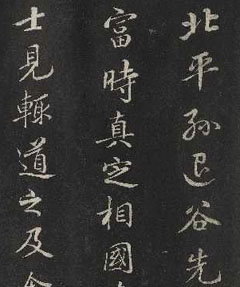 北平孙退谷先
富時真定相國
士見輙道之及